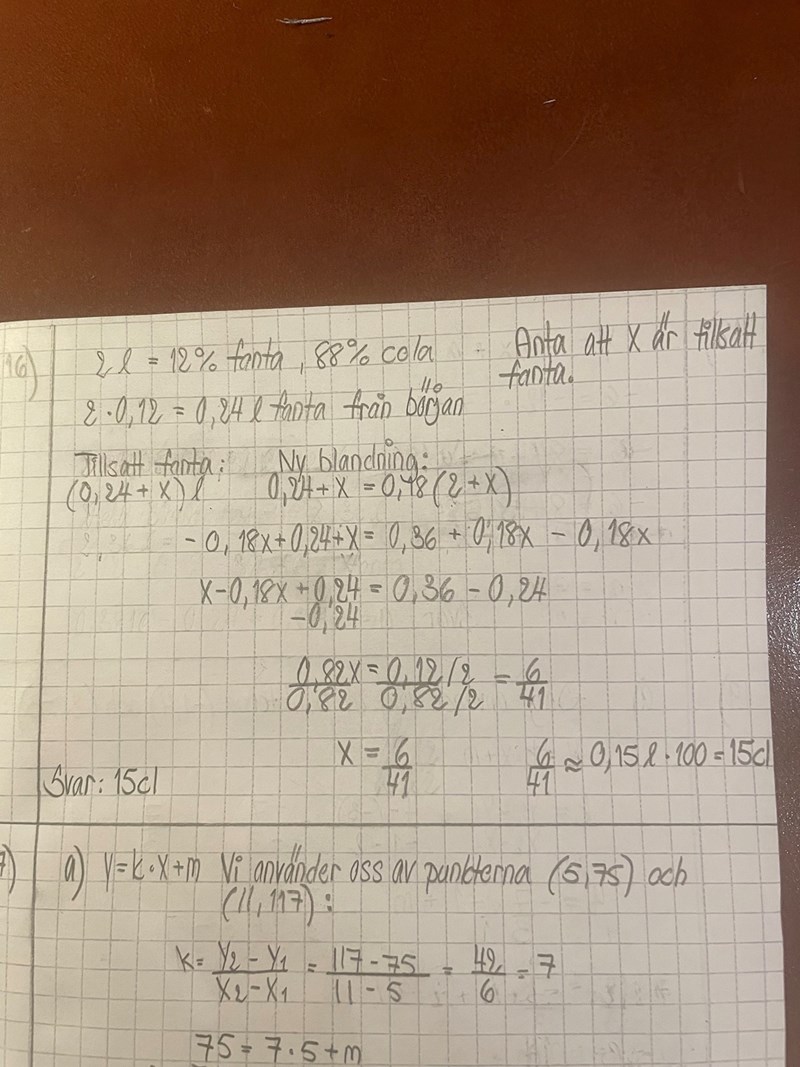 16)
2 l = 12% fanta, 88% cola
Anta att X är tillsatt
fanta.
2 · 0,12 = 0,24 l fanta från början
Tillsatt fanta: Ny blandning:
(0,24 + X) l 0,24 + X = 0,18 (2 + X)
- 0,18x + 0,24 + x = 0,36 + 0,18x - 0,18x
x - 0,18x + 0,24 = 0,36 - 0,24
- 0,24
0,82x / 0,82 = 0,12 /2 / 0,82 /2 = 6/41
X = 6/41 6/41 ≈ 0,15 l · 100 = 15cl
Svar: 15cl
7)
a) y = k · x + m Vi använder oss av punkterna (5,75) och
(11,117):
k = (y₂ - y₁)/(x₂ - x₁) = (117 - 75)/(11 - 5) = 42/6 = 7
75 = 7 · 5 + m